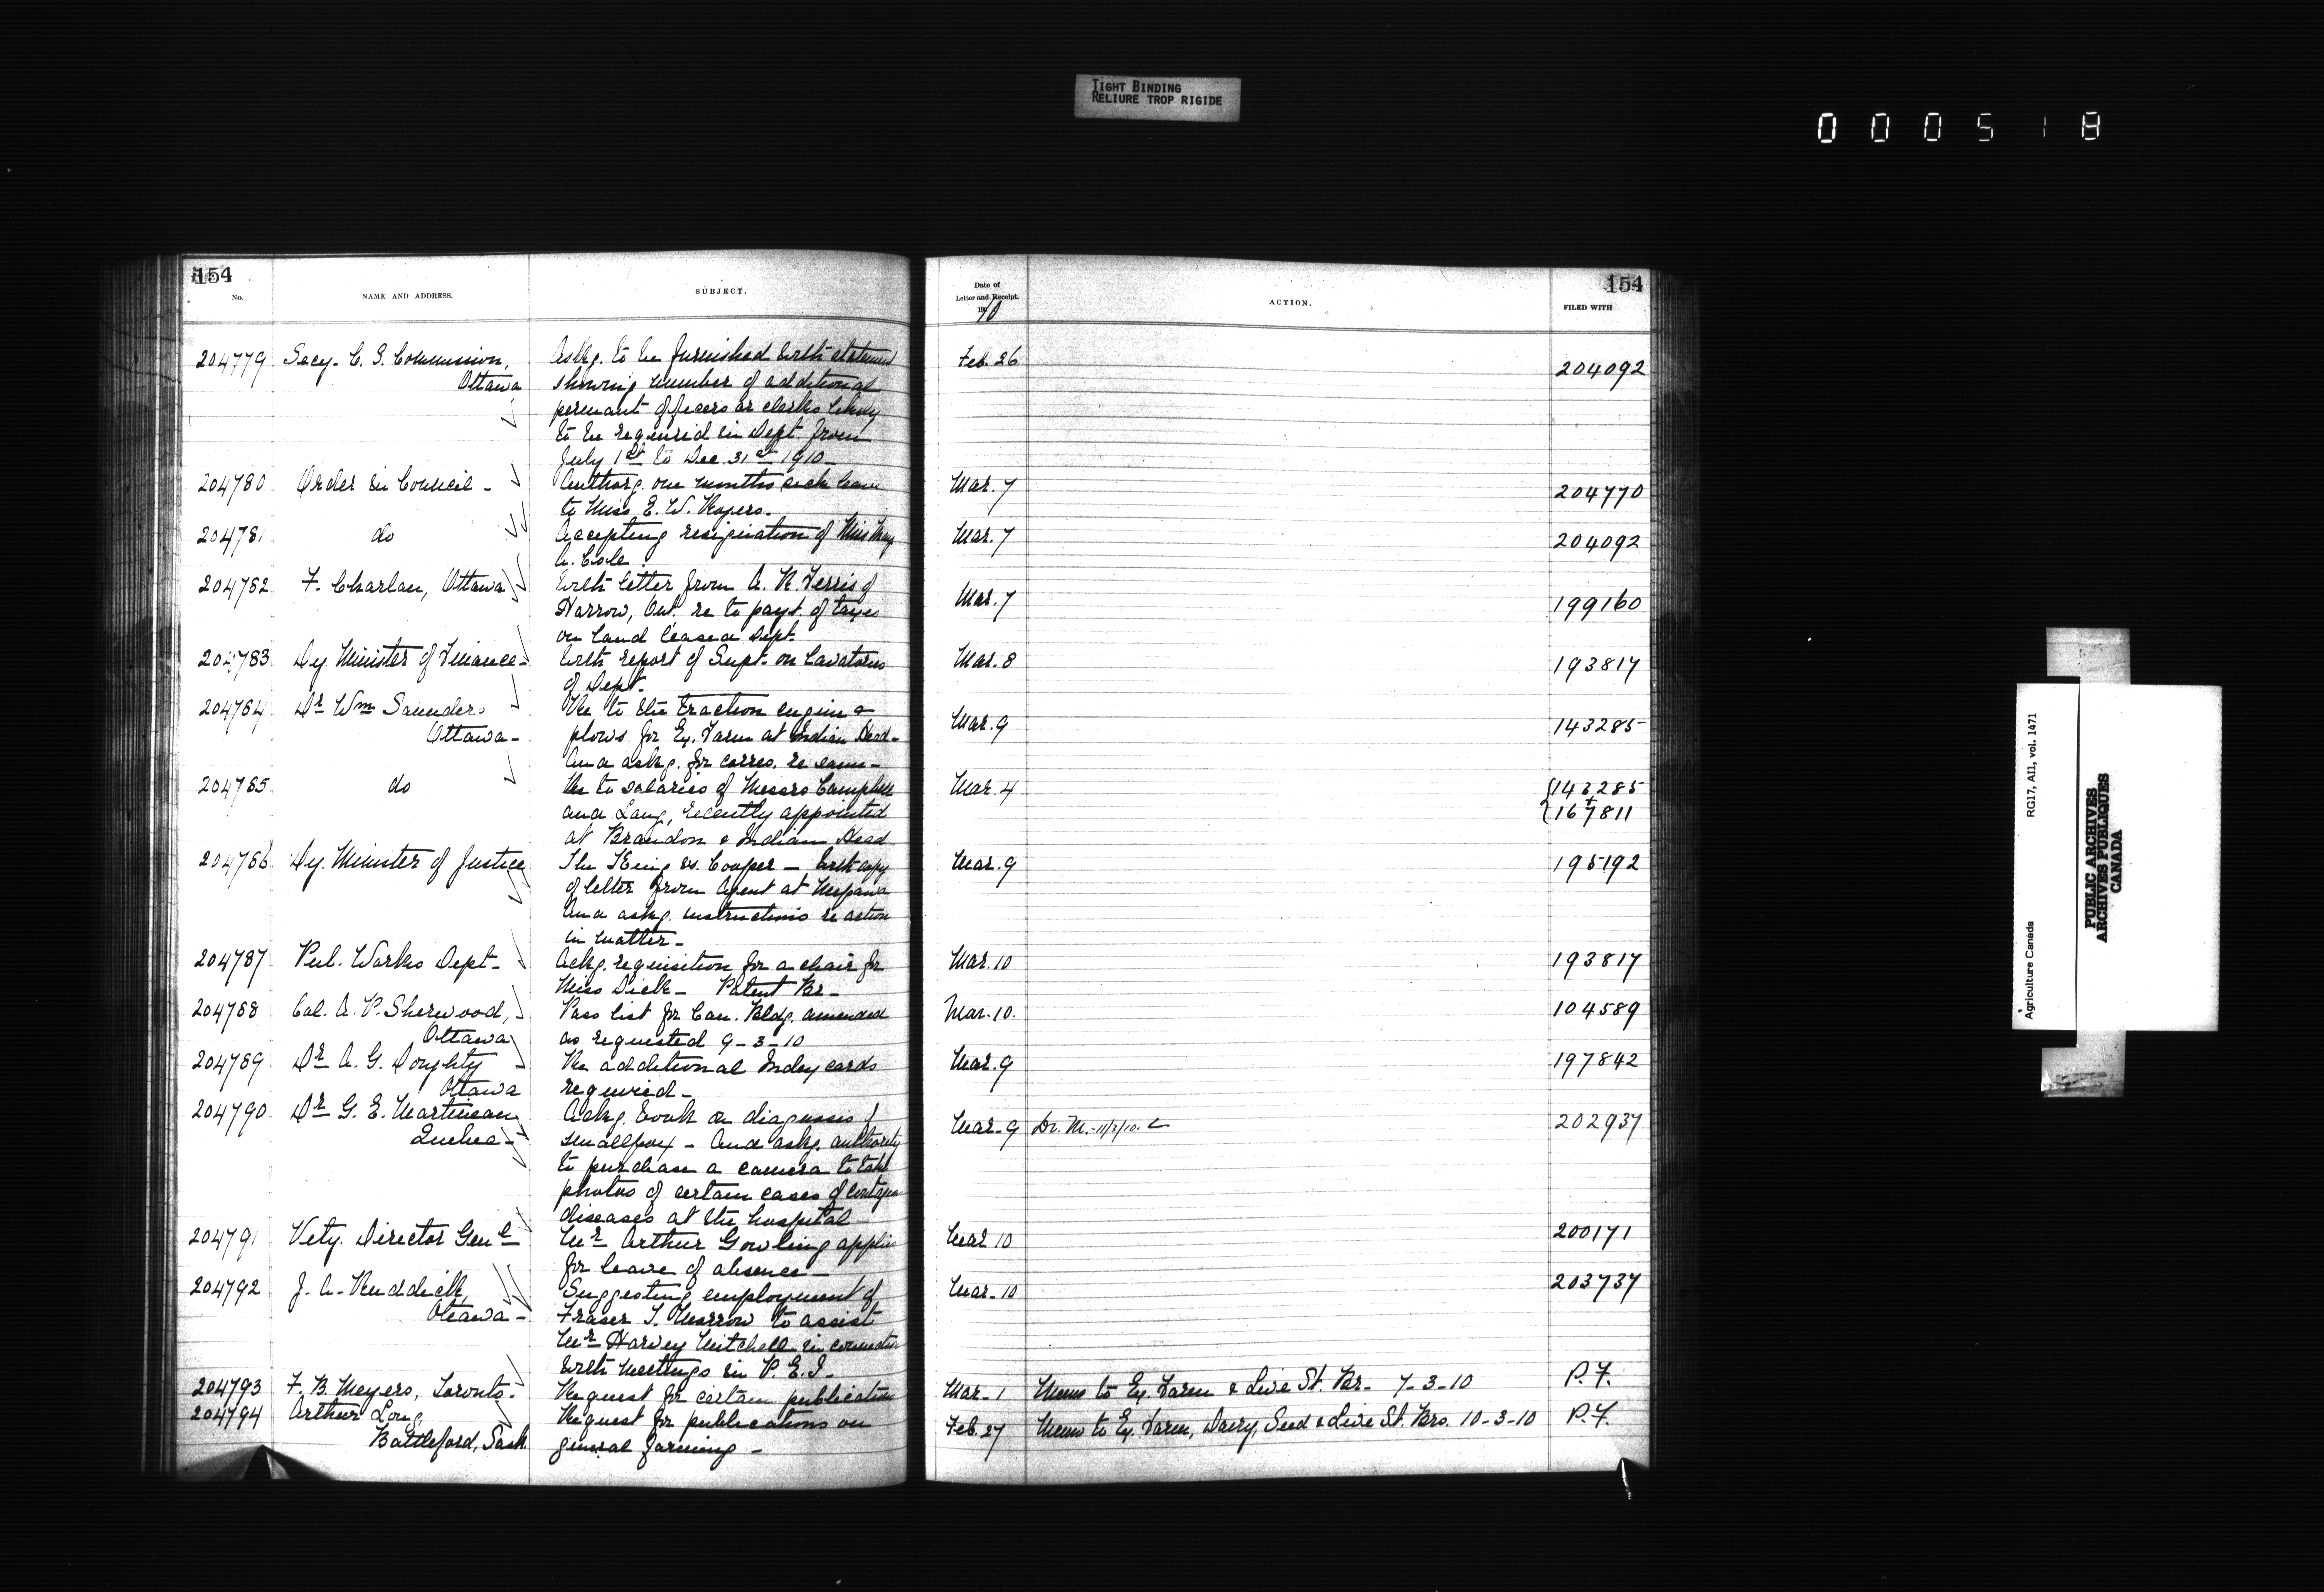 TIGHT BINDING
RELIURE TROP RIGIDE
000518
154
No.
NAME AND ADDRESS.
SUBJECT.
204779 Secy. C. S. Commission, Askg. to be furnished with statement
Ottawa showing number of additional
permant officers or clerks likely
to be required in Dept. from
July 1st to Dec 31st 1910 -
204780 Order in Council - Authorg. one months sick leave
to Miss E. W. Rogers.
204781 do Accepting resignation of Miss May
A. Cole
204782 F. Charlan, Ottawa With letter from A. R. Ferris of
Harrow, Ont. re to payt. of taxes
on land Dept.
204783 Dy Minister of Finance - With report of Supt. on Lavatories
of Dept.
204784 Dr Wm Saunders Re to the traction engine &
Ottawa - plows for Ex. Farm at Indian Head -
And askg. for corres. re same -
204785 do Re to salaries of Messrs Campbell
and Lang, recently appointed
at Brandon & Indian Head
204786 Dy. Minister of Justice The King vs. Cooper - With copy
of letter from Agent at Neepawa
And askg. instructions re action
in matter -
204787 Pub. Works Dept - Ackg. requisition for a chair for
Miss Dick - Patent Br -
204788 Col. A. P. Sherwood, Pass list for Can. Bldg. amended
Ottawa as requested 9-3-10
204789 Dr A. G. Doughty Re additional Index cards
Ottawa required -
204790 Dr G. E. Martineau Ackg. book on diagnosis of
Quebec - smallpox - And askg. authority
to purchase a camera to take
photos of certain cases of
diseases at the hospital
204791 Vety. Director Genl Mr Arthur Gowling applies
for leave of absence -
204792 J. A. Ruddick, Suggesting employment of
Ottawa - Fraser T. Morrow to assist
Mr Harvey Mitchell in connection
with meetings in P. E. I -
204793 F. B. Meyers, Toronto - Request for certain publications
204794 Arthur Long, Request for publications on
Battleford, Sask general farming -
154
Date of
Letter and Receipt.
1910
ACTION.
FILED WITH
Feb. 26 204092
Mar. 7 204770
Mar. 7 204092
Mar. 7 199160
Mar. 8 193817
Mar. 9 143285
Mar. 4 143285
+
167811
Mar. 9 195192
Mar. 10 193817
Mar. 10. 104589
Mar. 9 197842
Mar. 9 Dr. M. - 11/3/10. 202937
Mar 10 200171
Mar. 10 203737
Mar. 1 Memo to Ex. Farm & Live St. Br. 7-3-10 P. F.
Feb. 27 Memo to Ex. Farm, Dairy, Seed & Live St. Brs. 10-3-10 P. F.
Agriculture Canada RG17, AII, vol. 1471
PUBLIC ARCHIVES
ARCHIVES PUBLIQUES
CANADA